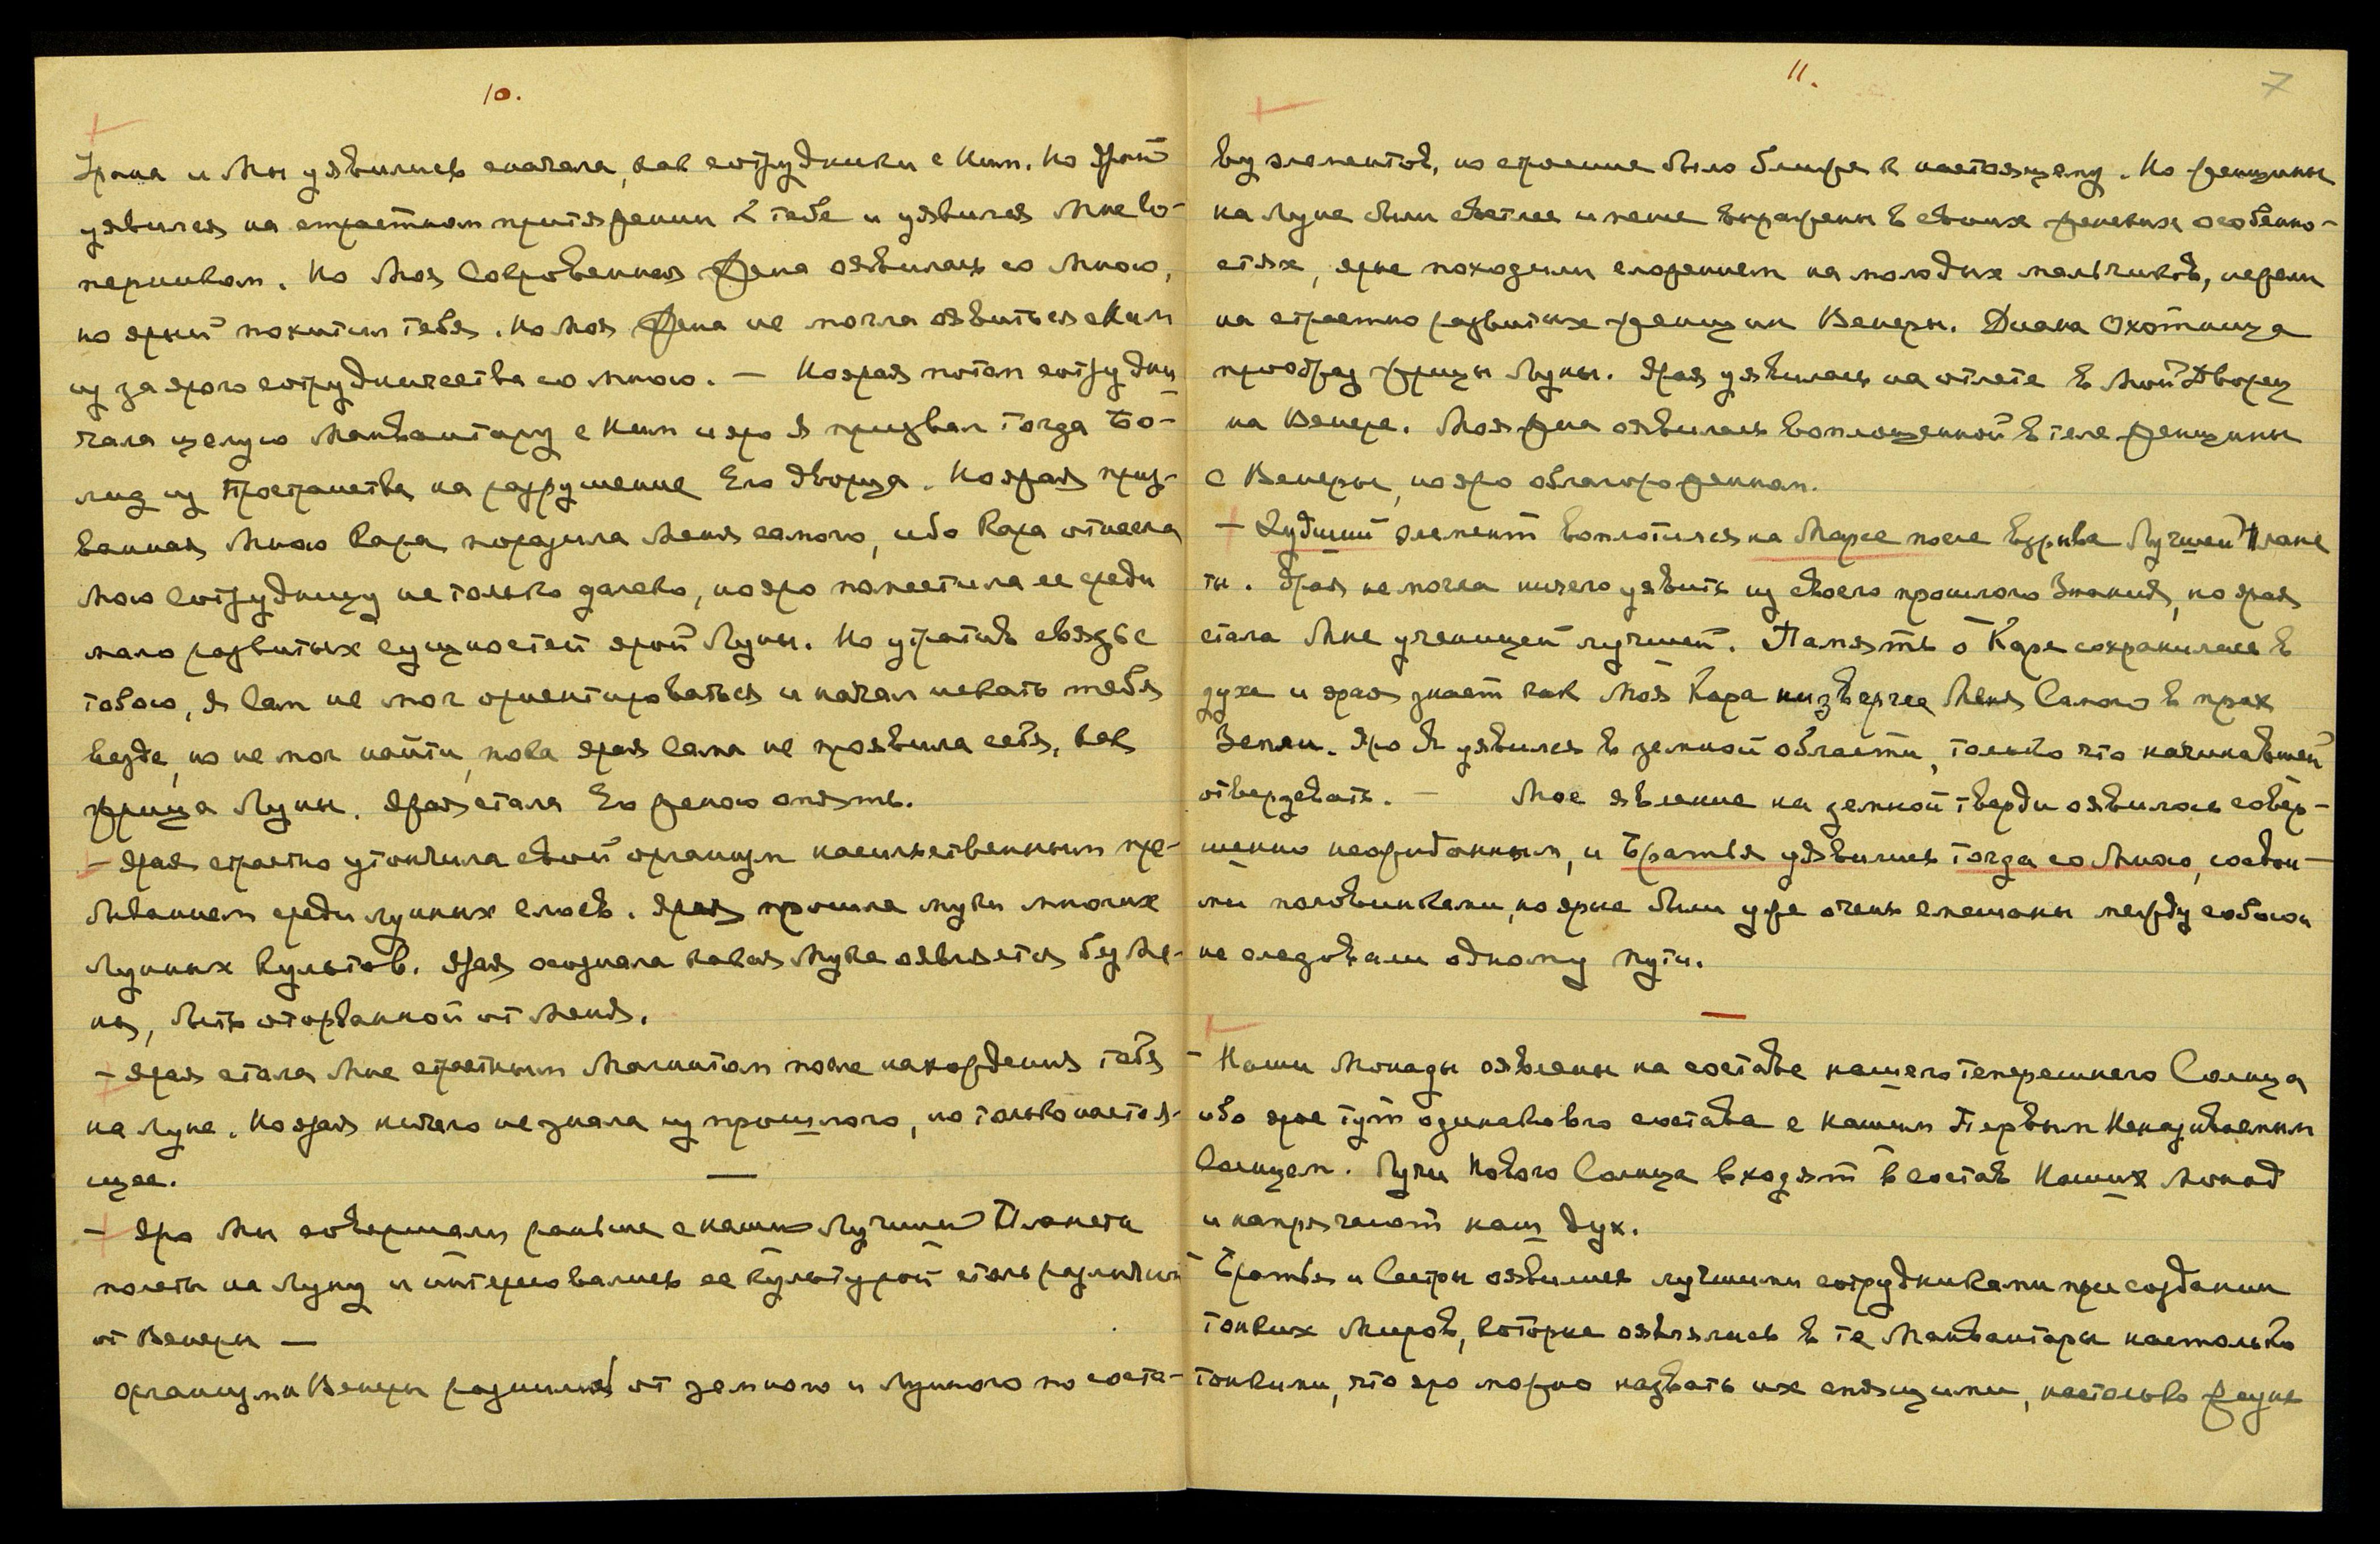 10.
Урана и Мы уявились сначала, как сотрудники с Ним. Но ярый
уявился на страстном притяжении к тебе и уявился Мне со-
перником. Но Моя Сокровенная Жена оявилась со Мною,
но ярый похитил тебя. Но Моя Жена не могла оявиться с Ним
из за ярого сотрудничества со Мною. — Но ярая потом сотрудни-
чала целую Манвантару с Ним и яро Я призвал тогда Бо-
лид из Пространства на разрушение Его дворца. Но ярая приз-
ванная Мною Кара поразила Меня самого, ибо Кара отнесла
Мою Сотрудницу не только далеко, но яро поместила ее среди
мало развитых сущностей ярой Луны. Но утратив связь с
тобою, Я Сам не мог ориентироваться и начал искать тебя
везде, но не мог найти, пока ярая Сама не проявила себя, как
жрица Луны. Ярая стала Его женою опять.
— Ярая страстно утончила свой организм насильственным пре-
быванием среди лунных слоев. Ярая прошла муки многих
Лунных Культов. Ярая осознала какая Мука оявляется без Ме-
ня, быть оторванной от Меня.
— Ярая стала Мне страстным Магнитом после нахождения тебя
на Луне. Но ярая ничего не знала из прошлого, но только настоя-
щее. —
— Яро Мы совершали раньше с нашей Лучшей Планеты
полеты на Луну и интересовались ее культурой столь различной
от Венеры —
организмы Венеры разнились от земного и Лунного по соста-
11.
7
ву элементов, но строение было ближе к настоящему. Но женщины
на Луне были светлее и менее выражены в своих женских особенно-
стях, ярые походили сложением на молодых мальчиков, нежели
на страстно развитых женщин Венеры. Диана Охотница
прообраз жрицы Луны. Ярая уявилась на отлете в Мой Дворец
на Венере. Моя жена оявилась воплощенной в теле женщины
с Венеры, но яро облагороженном.
— Худший элемент воплотился на Марсе после взрыва Лучшей Плане
ты. Ярая не могла ничего уявить из своего прошлого Знания, но ярая
стала Мне ученицей лучшей. Память о Каре сохранилась в
духе и ярая знает как Моя Кара низвергла Меня Самого в прах
Земли. Яро Я уявился в земной области, только что начинавшей
отвердевать. — Мое явление на земной тверди оявилось совер-
шенно неожиданным, и Братья уявились тогда со Мною, своди-
ми половинками, но ярые были уже очень смешаны между собою и
не следовали одному пути.
—
— Наши Монады оявлены на составе нашего теперешнего Солнца
ибо ярое тут одинакового состава с нашим Первым Неназываемым
Солнцем. Лучи Нового Солнца входят в состав Наших Монад
и напрягают наш дух.
Братья и Сестры оявились лучшими сотрудниками при создании
тонких Миров, которые оявлялись в те Манвантары настолько
тонкими, что яро можно назвать их спящими, настолько